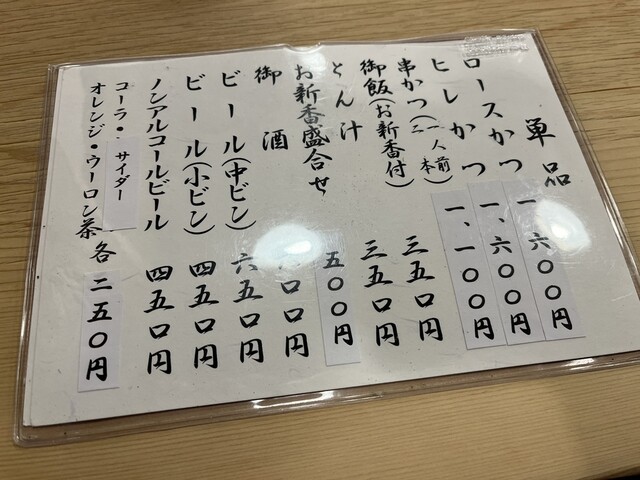 単品
ロースかつ 一、六〇〇円
ヒレかつ 一、六〇〇円
串かつ(一人前二本) 一、一〇〇円
御飯(お新香付) 三五〇円
とん汁 三五〇円
お新香盛合せ 五〇〇円
御酒 〇〇円
ビール(中ビン) 六五〇円
ビール(小ビン) 四五〇円
ノンアルコールビール 四五〇円
コーラ・サイダー
オレンジ・ウーロン茶 各 二五〇円